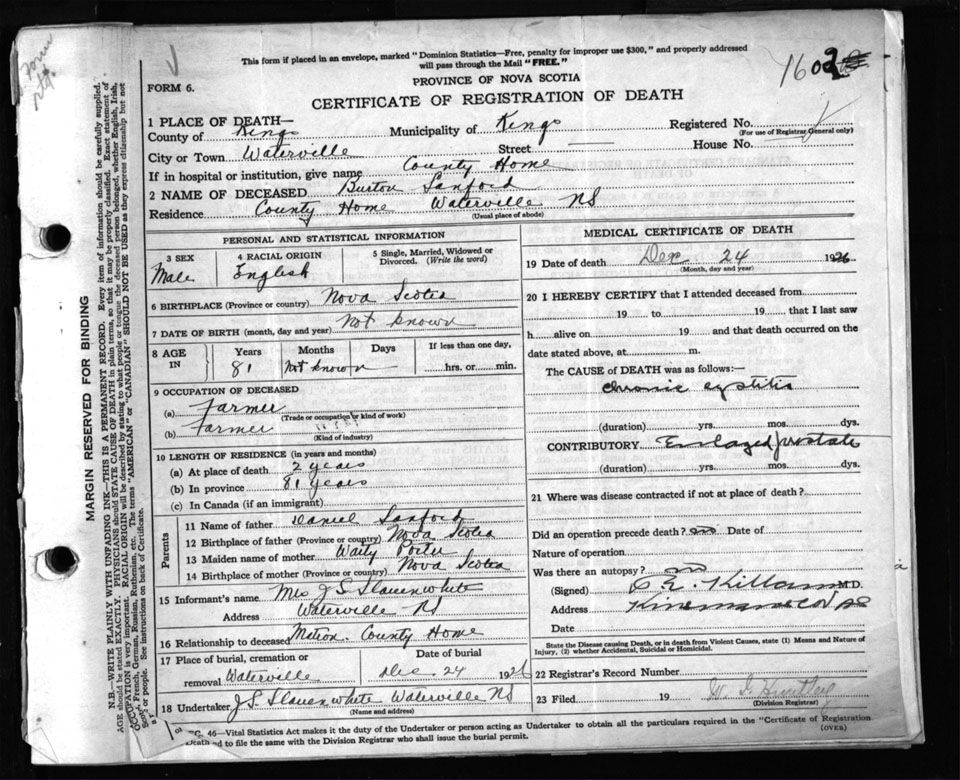 This form if placed in an envelope, marked "Dominion Statistics—Free, penalty for improper use $300," and properly addressed
will pass through the Mail "FREE."
FORM 6.
PROVINCE OF NOVA SCOTIA
CERTIFICATE OF REGISTRATION OF DEATH
1602
1 PLACE OF DEATH—
County of Kings Municipality of Kings Registered No.
(For use of Registrar General only)
City or Town Waterville Street House No.
If in hospital or institution, give name County Home
2 NAME OF DECEASED Burton Sanford
Residence County Home Waterville NS
(Usual place of abode)
PERSONAL AND STATISTICAL INFORMATION
3 SEX 4 RACIAL ORIGIN 5 Single, Married, Widowed or
Divorced. (Write the word)
Male English
6 BIRTHPLACE (Province or country) Nova Scotia
7 DATE OF BIRTH (month, day and year) Not known
8 AGE IN Years Months Days If less than one day,
81 Not known hrs. or min.
9 OCCUPATION OF DECEASED
(a) Farmer
(Trade or occupation or kind of work)
(b) Farmer
(Kind of industry)
10 LENGTH OF RESIDENCE (in years and months)
(a) At place of death 2 years
(b) In province 81 years
(c) In Canada (if an immigrant)
Parents
11 Name of father Daniel Sanford
12 Birthplace of father (Province or country) Nova Scotia
13 Maiden name of mother Waity Porter
14 Birthplace of mother (Province or country) Nova Scotia
15 Informant's name Mrs J S Slauenwhite
Address Waterville NS
16 Relationship to deceased Matron County Home
17 Place of burial, cremation or removal Waterville
Date of burial
Dec. 24 1926
18 Undertaker J S Slauenwhite Waterville NS
(Name and address)
MEDICAL CERTIFICATE OF DEATH
19 Date of death Dec 24 1926
(Month, day and year)
20 I HEREBY CERTIFY that I attended deceased from
19 to 19 that I last saw
h alive on 19 and that death occurred on the
date stated above, at m.
The CAUSE of DEATH was as follows:
Chronic cystitis
(duration) yrs. mos. dys.
CONTRIBUTORY Enlarged prostate
(duration) yrs. mos. dys.
21 Where was disease contracted if not at place of death?
Did an operation precede death? no Date of
Nature of operation
Was there an autopsy? no
(Signed) M.D.
Address
Date
State the Disease causing Death, or in death from Violent Causes, state (1) Means and Nature of
Injury, (2) whether Accidental, Suicidal or Homicidal.
22 Registrar's Record Number
23 Filed 19
(Division Registrar)
46—Vital Statistics Act makes it the duty of the Undertaker or person acting as Undertaker to obtain all the particulars required in the "Certificate of Registration
Death and to file the same with the Division Registrar who shall issue the burial permit.
(OVER)
MARGIN RESERVED FOR BINDING
N.B.—WRITE PLAINLY WITH UNFADING INK—THIS IS A PERMANENT RECORD. Every item of information should be carefully supplied.
AGE should be stated EXACTLY. PHYSICIANS should STATE CAUSE OF DEATH in plain terms, so that it may be properly classified. Exact statement of
OCCUPATION is very important. RACIAL ORIGIN will be described by stating to what people or tongue the deceased person belonged, whether English, Irish,
French, German, Russian, Ruthenian, etc. The terms "AMERICAN" or "CANADIAN" SHOULD NOT BE USED as they express citizenship but not
or people. See instructions on back of Certificate.